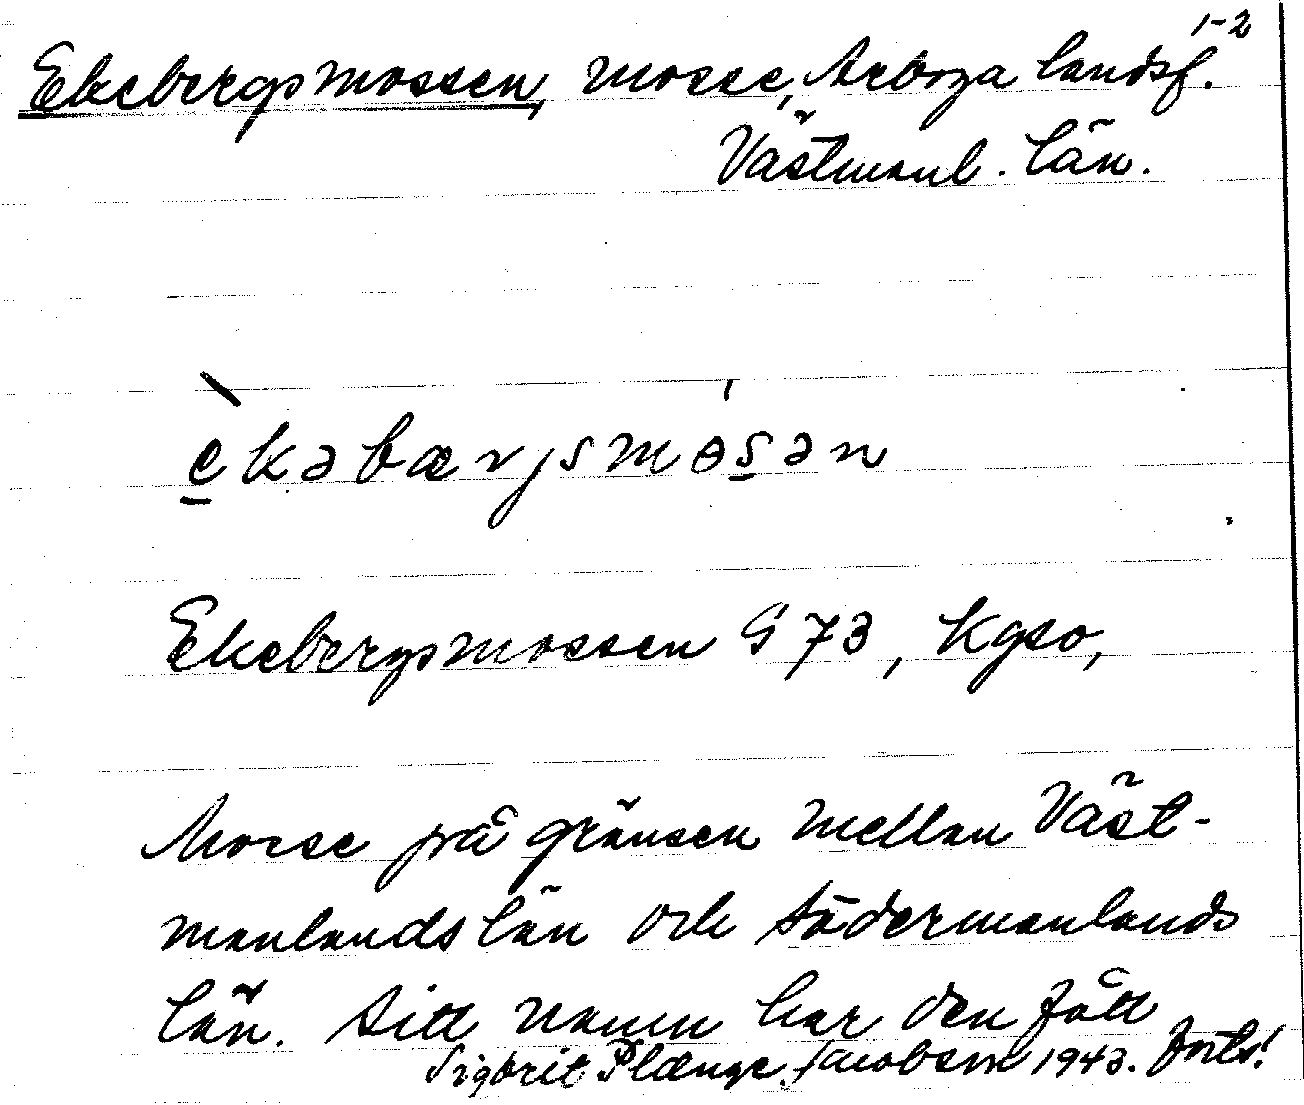 1-2
Ekebergsmossen, mosse, Arboga landsf.
Västmanl. län.
èkəbærjsmɵ́sən
Ekebergsmossen G 73, Kgso,
Mosse på gränsen mellan Väst-
manlands län och Södermanlands
län. Sitt namn har den fått
Sigbrit Plænge Jacobson 1943. forts!